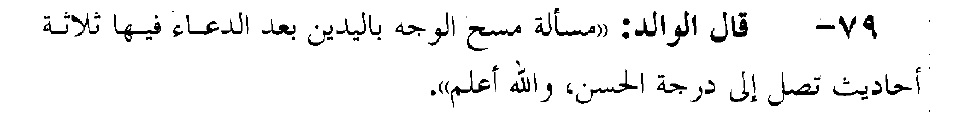 ٧٩- قال الوالد: «مسألة مسح الوجه باليدين بعد الدعاء فيها ثلاثة
أحاديث تصل إلى درجة الحسن، والله أعلم».